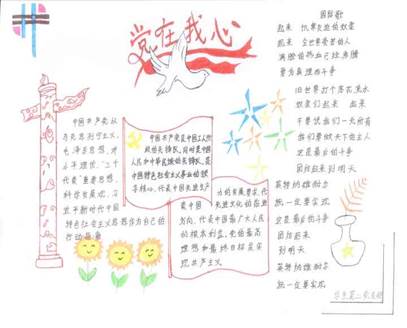 党在我心
中国共产党以
马克思列宁主义、
毛泽东思想、邓
小平理论、"三个
代表"重要思想、
科学发展观、习
近平新时代中国
特色社会主义思想作为自己的
行动指南
中国共产党是中国工人阶
级的先锋队,同时是中国
人民和中华民族的先锋队,是
中国特色社会主义事业的领
导核心,代表中国先进生产
力的发展要求,代
表中国先进文化的前进
方向,代表中国最广大人民
的根本利益。党的最高
理想和最终目标是实
现共产主义。
国际歌
起来 饥寒交迫的奴隶
起来 全世界受苦的人
满腔的热血已经沸腾
要为真理而斗争
旧世界打个落花流水
奴隶们起来 起来
不要说我们一无所有
我们要做天下的主人
这是最后的斗争
团结起来到明天
英特纳雄耐尔
就一定要实现
这是最后的斗争
团结起来
到明天
英特纳雄耐尔
就一定要实现